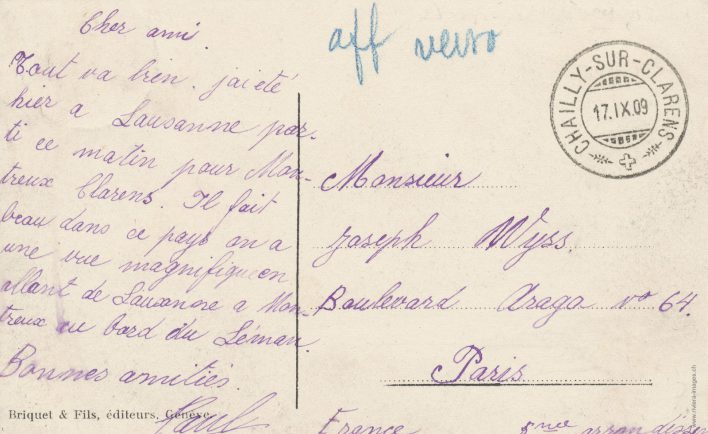 Cher ami.
Tout va bien. j'ai été
hier a Lausanne par-
ti ce matin pour Mon-
treux Clarens. Il fait
beau dans ce pays on a
une vue magnifique en
allant de Lausanne a Mon-
treux au bord du Léman.
Bonnes amitiés.
Paul
Briquet & Fils, éditeurs, Genève
aff verso
CHAILLY-SUR-CLARENS
17.IX.09
Monsieur
Joseph Wyss.
Boulevard Arago no 64.
Paris
France 5me arrondisse
www.riviera-images.ch